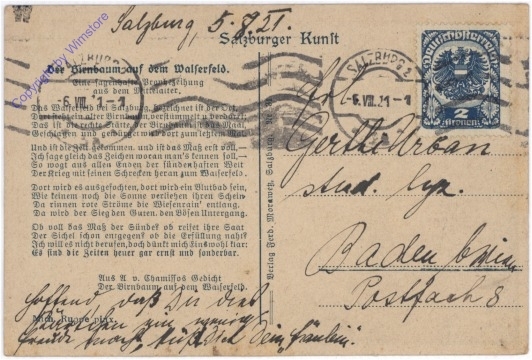 Salzburg, 5.7.21.
Copyright by Wimstore
Salzburger Kunst
Der Birnbaum auf dem Walserfeld.
Eine sagenhafte Brandzeitung
aus dem Mittelalter.
Das Walserfeld bei Salzburg, bezeichnet ist der Ort,
Dort steht ein alter Birnbaum verstümmelt u. verdorrt;
Das ist die rechte Stätte, der Birnbaum ist das Mal,
Geschlagen und gewürgt wird dort zum letztenmal.
Und ist die Zeit gekommen, und ist das Maß erst voll,
Ich sage gleich das Zeichen, woran man's kennen soll,—
So wogt aus allen Enden der sündenhaften Welt
Der Krieg mit seinen Schrecken heran zum Walserfeld.
Dort wird es ausgefochten, dort wird ein Blutbad sein,
Wie keinem noch die Sonne verliehen ihren Schein,
Da rinnen rote Ströme die Wiesenrain' entlang,
Da wird der Sieg den Guten, den Bösen Untergang.
Ob voll das Maß der Sünden, ob reifet ihre Saat
Der Sichel schon entgegen, ob die Erfüllung naht?
Ich will es nicht berufen, doch dünkt mich Eins wohl klar:
Es sind die Zeiten heuer gar ernst und sonderbar.
Aus A. v. Chamissos Gedicht
Der Birnbaum auf dem Walserfeld.
Hoffend daß Dir dies
Kärtchen ein wenig
Freude macht, küßt Dich Dein Fräulein.
Mich. Ruppe pinx.
Verlag Ferd. Morawetz, Salzburg.
SALZBURG 2
-6.VII.21-1
SALZBURG 2
-6.VII.21-1
Deutschösterreich
2
Kronen
Grethe Urban
stud.
Baden b/Wien
Postfach 8